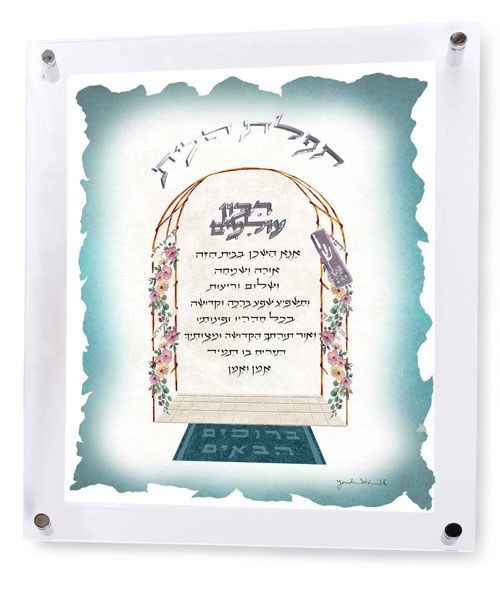 תפלת הבית
רבון
עולמים
ש
אנא השכן בבית הזה
אורה ושמחה
ושלום וריעות
ותשפיע שפע ברכה וקדושה
בכל חדריו ופינותיו
ואור תורתך הקדושה ומצותיך
תזריח בו תמיד
אמן ואמן
ברוכים
הבאים